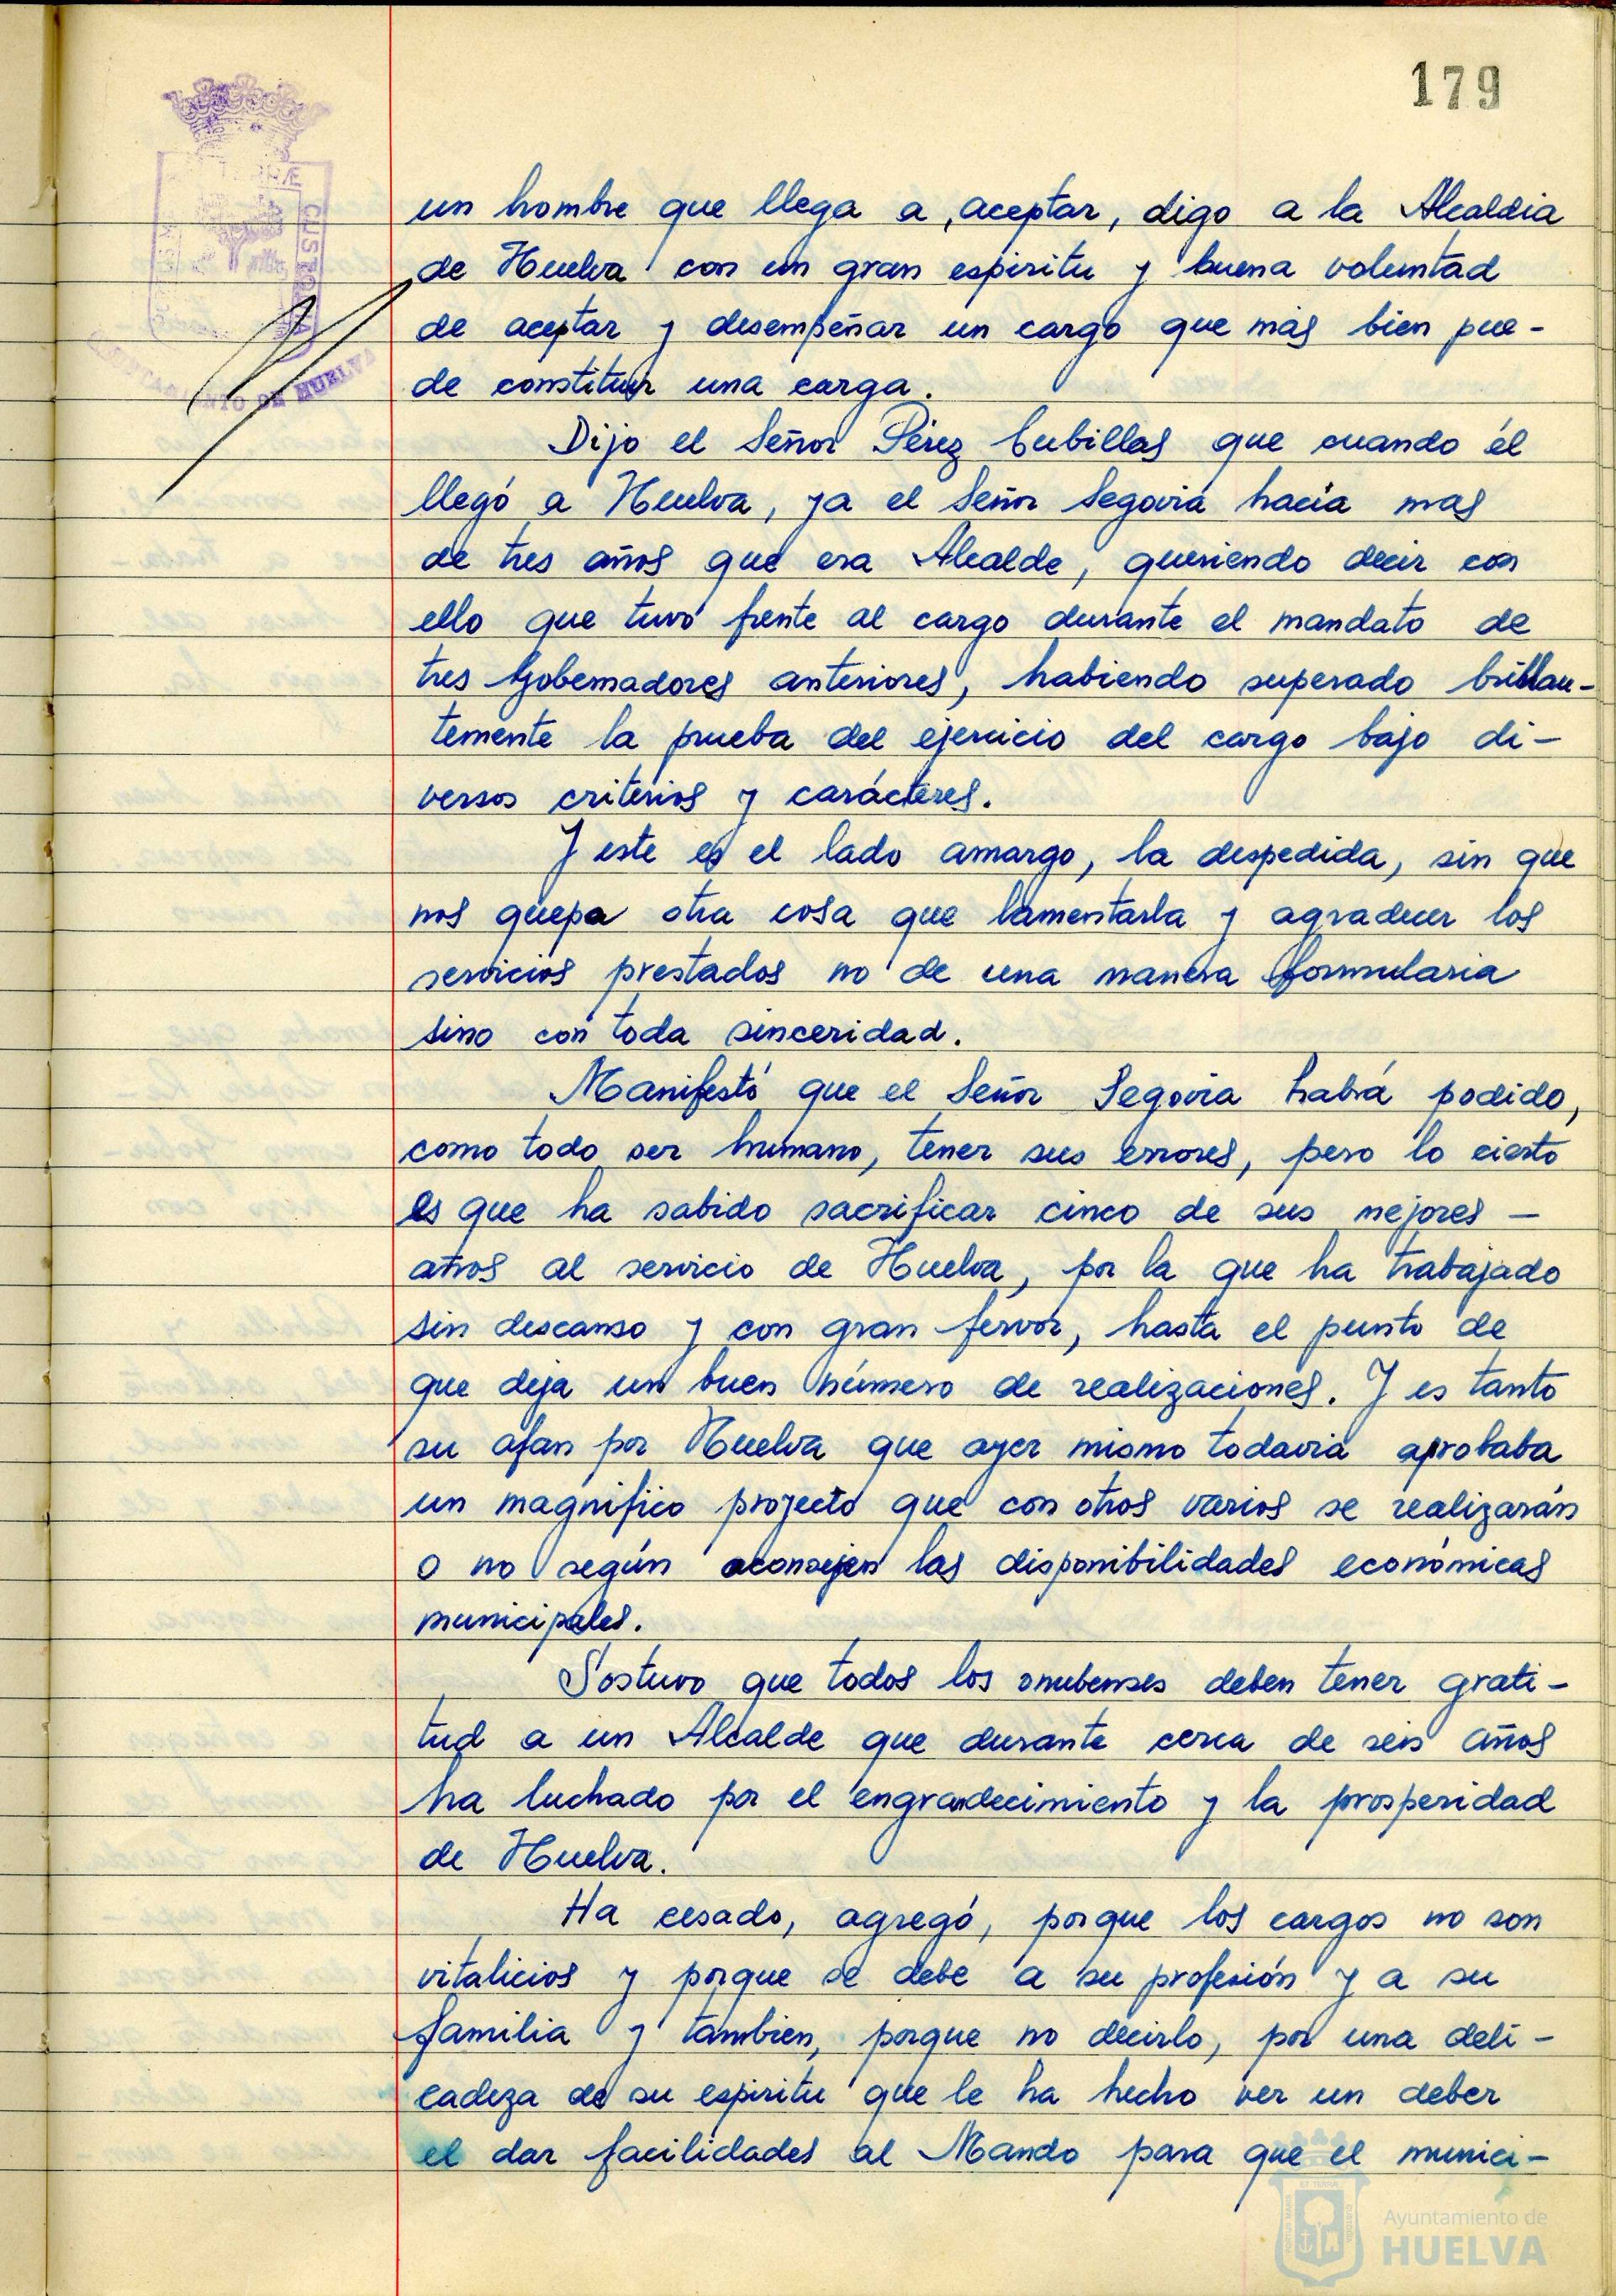 179
TERRÆ
CUSTODIA
AYUNTAMIENTO DE HUELVA
un hombre que llega a, aceptar, digo a la Alcaldia
de Huelva con un gran espiritu y buena voluntad
de aceptar y desempeñar un cargo que más bien pue-
de constituir una carga.
Dijo el Señor Pérez Cubillas que cuando él
llegó a Huelva, ya el Señor Segovia hacía mas
de tres años que era Alcalde, queriendo decir con
ello que tuvo frente al cargo durante el mandato de
tres Gobernadores anteriores, habiendo superado brillan-
temente la prueba del ejercicio del cargo bajo di-
versos criterios y carácteres.
Y este es el lado amargo, la despedida, sin que
nos quepa otra cosa que lamentarla y agradecer los
servicios prestados no de una manera formularia
sino con toda sinceridad.
Manifestó que el Señor Segovia habrá podido,
como todo ser humano, tener sus errores, pero lo cierto
es que ha sabido sacrificar cinco de sus mejores -
años al servicio de Huelva, por la que ha trabajado
sin descanso y con gran fervor, hasta el punto de
que deja un buen número de realizaciones. Y es tanto
su afan por Huelva que ayer mismo todavia aprobaba
un magnifico proyecto que con otros varios se realizarán
o no según aconsejen las disponibilidades económicas
municipales.
Sostuvo que todos los onubenses deben tener grati-
tud a un Alcalde que durante cerca de seis años
ha luchado por el engrandecimiento y la prosperidad
de Huelva.
Ha cesado, agregó, porque los cargos no son
vitalicios y porque se debe a su profesión y a su
familia y tambien, porque no decirlo, por una deli-
cadeza de su espiritu que le ha hecho ver un deber
el dar facilidades al Mando para que el munici-
Ayuntamiento de
HUELVA